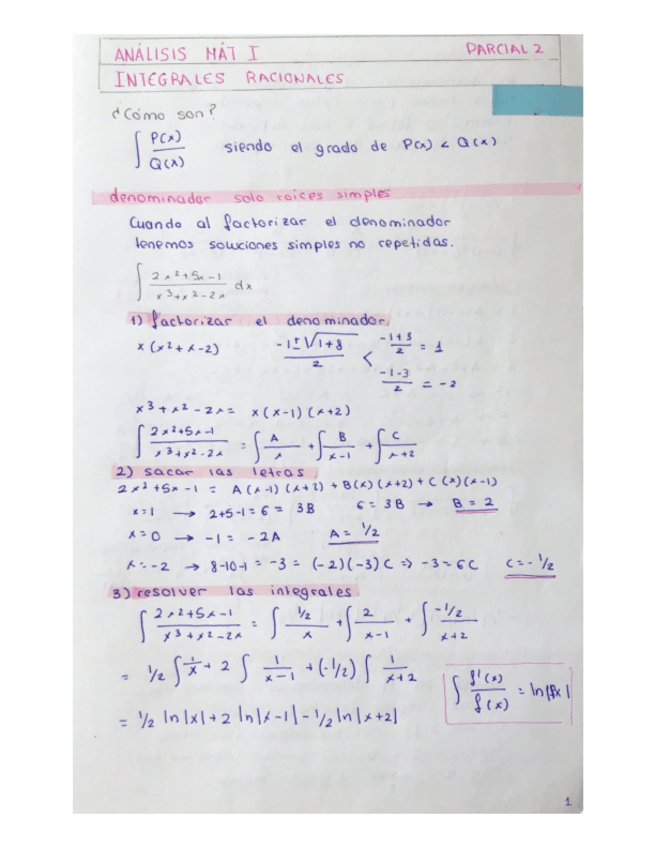 ANÁLISIS MÁT I PARCIAL 2
INTEGRALES RACIONALES
¿Cómo son?
∫ P(x)/Q(x) siendo el grado de P(x) < Q(x)
denominador solo raíces simples
Cuando al factorizar el denominador
tenemos soluciones simples no repetidas.
∫ (2x²+5x-1)/(x³+x²-2x) dx
1) factorizar el denominador
x(x²+x-2) (-1±√(1+8))/2 < (-1+3)/2 = 1
(-1-3)/2 = -2
x³+x²-2x = x(x-1)(x+2)
∫ (2x²+5x-1)/(x³+x²-2x) = ∫ A/x + ∫ B/(x-1) + ∫ C/(x+2)
2) sacar las letras
2x²+5x-1 = A(x-1)(x+2) + B(x)(x+2) + C(x)(x-1)
x=1 → 2+5-1=6 = 3B 6=3B → B=2
x=0 → -1 = -2A A=1/2
x=-2 → 8-10-1 = -3 = (-2)(-3)C => -3=6C C=-1/2
3) resolver las integrales
∫ (2x²+5x-1)/(x³+x²-2x) = ∫ (1/2)/x + ∫ 2/(x-1) + ∫ (-1/2)/(x+2)
= 1/2 ∫ 1/x + 2 ∫ 1/(x-1) + (-1/2) ∫ 1/(x+2)
∫ f'(x)/f(x) = ln|fx|
= 1/2 ln|x| + 2 ln|x-1| - 1/2 ln|x+2|
1